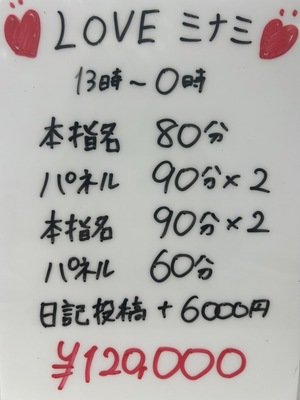 LOVE ミナミ
13時〜0時
本指名 80分
パネル 90分×2
本指名 90分×2
パネル 60分
日記投稿 + 6000円
¥129,000